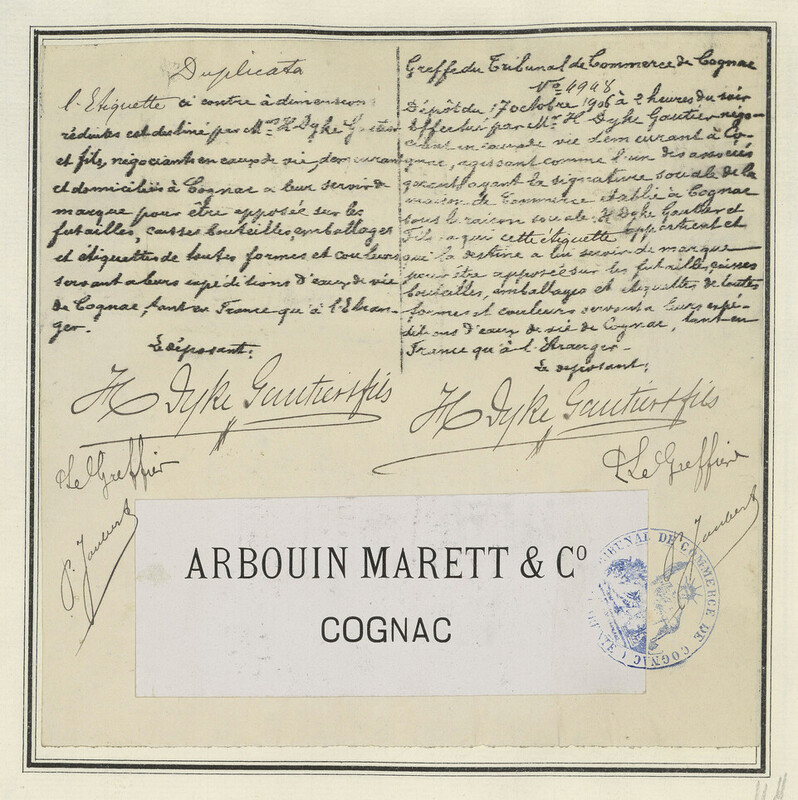 Duplicata
l'Etiquette ci contre à dimension
réduites est destiné par Mrs H Dyke Gautier
et fils, négociants en eaux de vie, demeurant
et domiciliés à Cognac a leur servir de
marque pour être apposée sur les
futailles, caisses bouteilles, emballages
et étiquettes de toutes formes et couleurs
servant a leurs expéditions d'eaux de vie
de Cognac, tant en France qu'à l'Etran-
ger.
Le déposant:
H Dyke Gautier & fils
Le Greffier
P. Jaubert
Greffe du Tribunal de Commerce de Cognac
No 4948
Dépôt du 17 octobre 1906 à 2 heures du soir
Effectué par Mr H Dyke Gautier négo-
ciant en eaux de vie demeurant à Co-
gnac, agissant comme l'un des associés
gérant ayant la signature sociale de la
maison de Commerce établie à Cognac
sous la raison sociale H Dyke Gautier et
Fils a qui cette étiquette appartient et
qui la destine a lui servir de marque
pour être apposée sur les futailles, caisses
bouteilles, emballages et étiquettes de toutes
formes et couleurs servant a leurs expé-
ditions d'eaux de vie de Cognac, tant en
France qu'à l'Etranger-
Le deposant:
H Dyke Gautier & fils
Le Greffier
Jaubert
ARBOUIN MARETT & Co
COGNAC
TRIBUNAL DE COMMERCE DE COGNAC